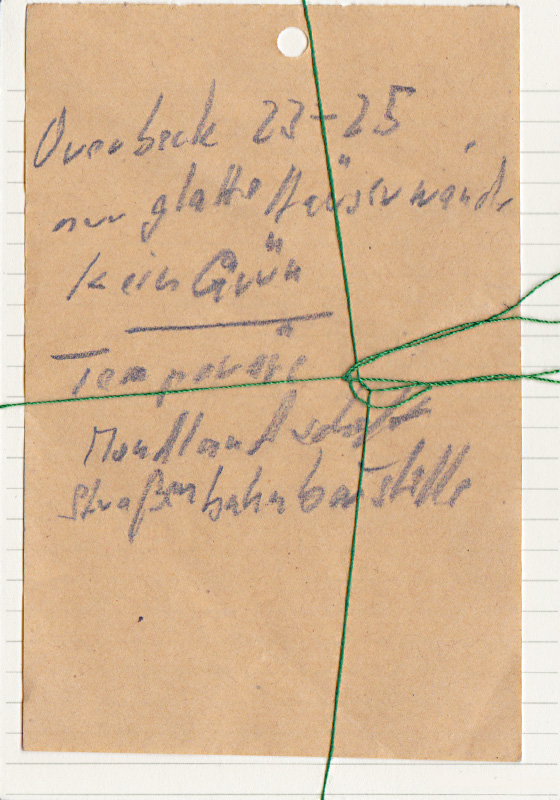 Overbeck 23-25
nur glatte Häuserwände
kein Grün
Temporäre
Mondlandschaft
Straßenbahnbaustelle